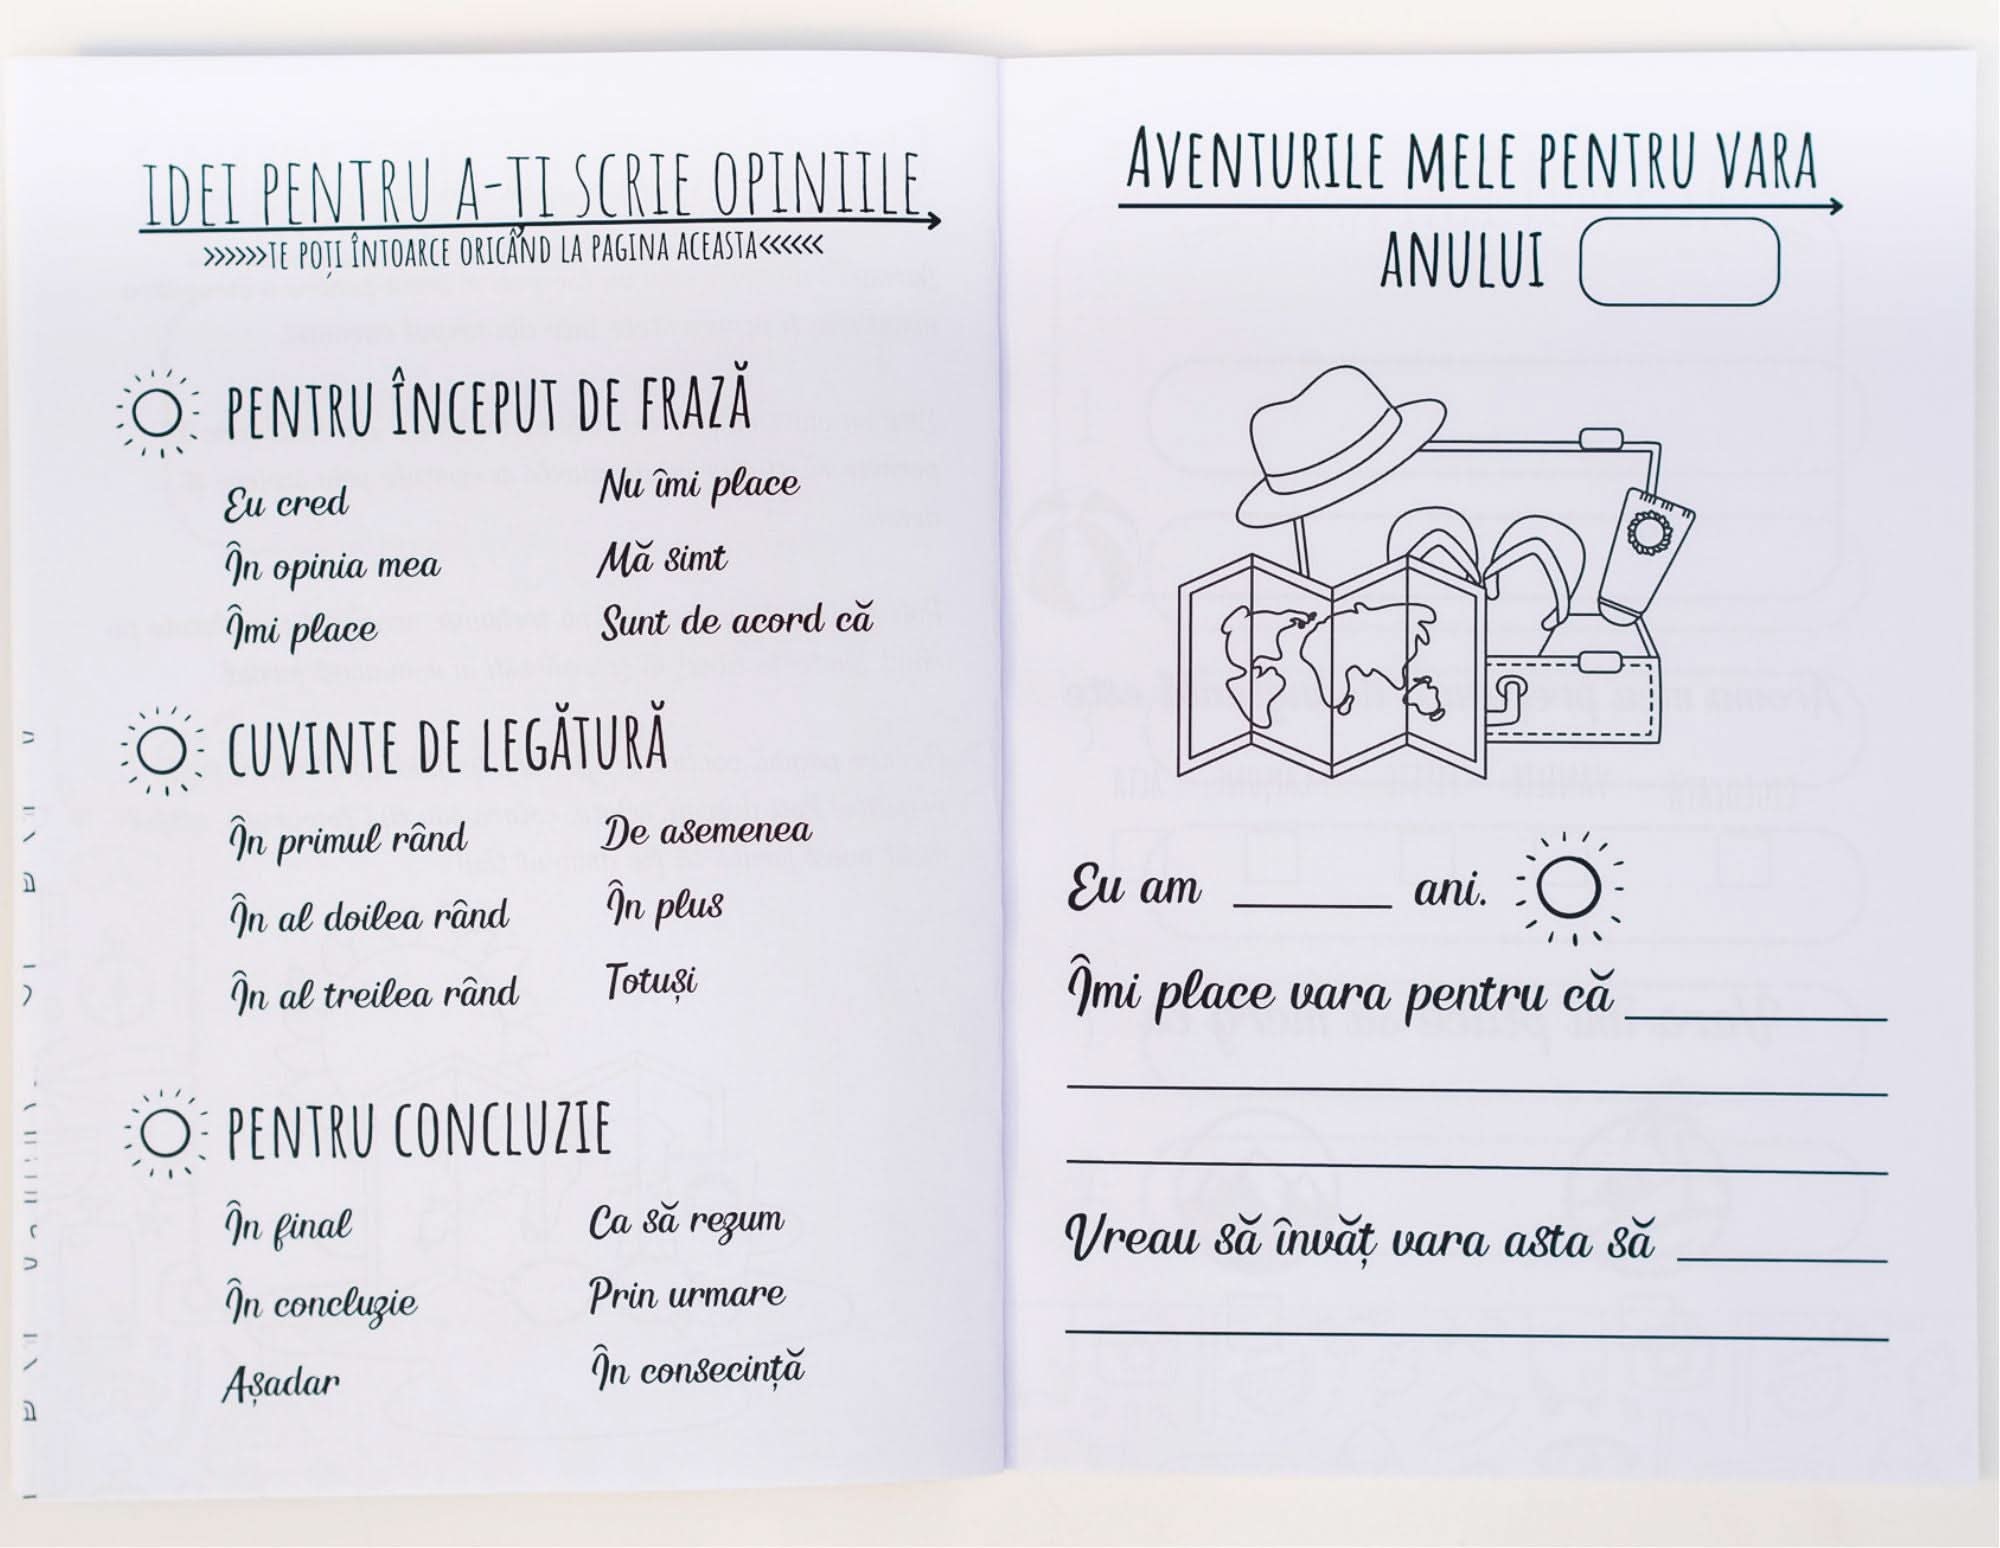 IDEI PENTRU A-ȚI SCRIE OPINIILE
>>>>>>TE POȚI ÎNTOARCE ORICÂND LA PAGINA ACEASTA<<<<<<
PENTRU ÎNCEPUT DE FRAZĂ
Eu cred
În opinia mea
Îmi place
Nu îmi place
Mă simt
Sunt de acord că
CUVINTE DE LEGĂTURĂ
În primul rând
În al doilea rând
În al treilea rând
De asemenea
În plus
Totuși
PENTRU CONCLUZIE
În final
În concluzie
Așadar
Ca să rezum
Prin urmare
În consecință
AVENTURILE MELE PENTRU VARA
ANULUI
Eu am ______ ani.
Îmi place vara pentru că
Vreau să învăț vara asta să